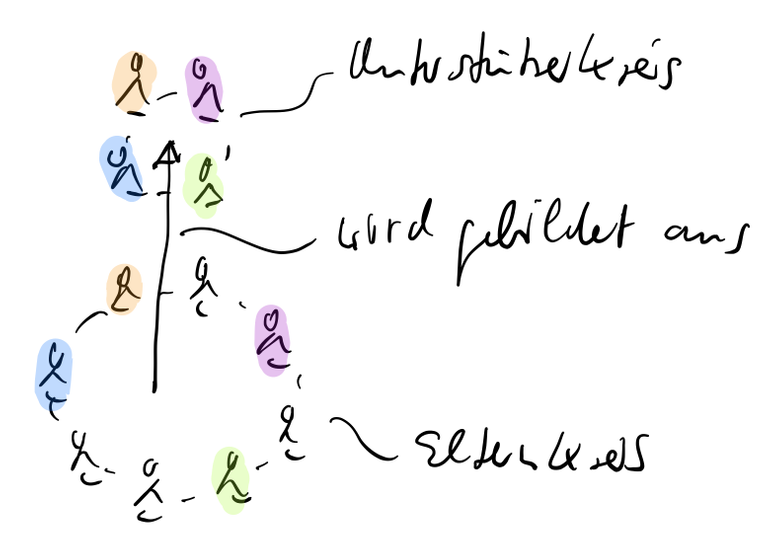 Unterstützerkreis
wird gebildet aus
Elternkreis